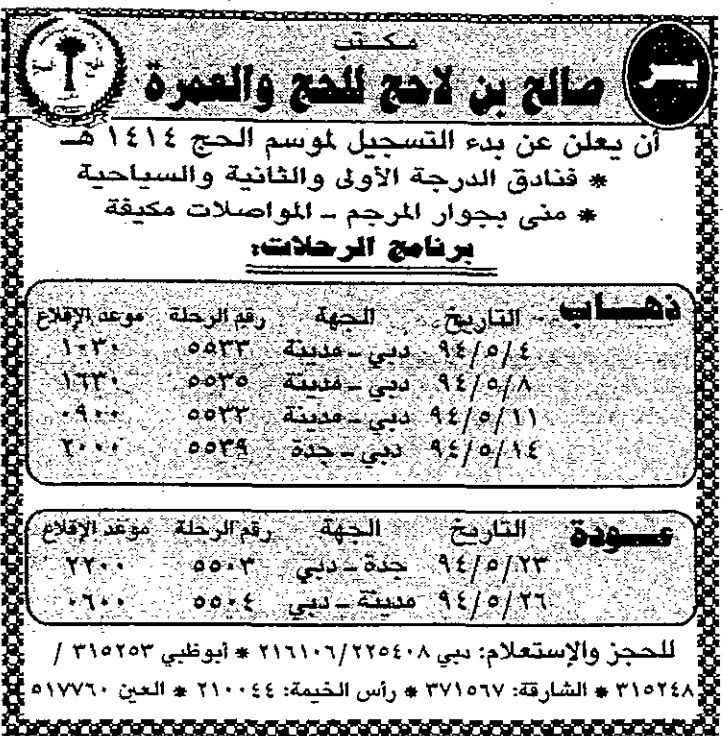 يسر
مكتب
صالح بن لاحج للحج والعمرة
أن يعلن عن بدء التسجيل لموسم الحج ١٤١٤ هـ
* فنادق الدرجة الأولى والثانية والسياحية
* منى بجوار المرجم - المواصلات مكيفة
برنامج الرحلات:
ذهاب التاريخ الجهة رقم الرحلة موعد الإقلاع
٩٤/٥/٤ دبي - مدينة ٥٥٣٣ ١٠٣٠
٩٤/٥/٨ دبي - مدينة ٥٥٣٥ ١٦٣٠
٩٤/٥/١١ دبي - مدينة ٥٥٣٣ ٠٩٠٠
٩٤/٥/١٤ دبي - جدة ٥٥٣٩ ٢٠٠٠
عودة التاريخ الجهة رقم الرحلة موعد الإقلاع
٩٤/٥/٢٣ جدة - دبي ٥٥٠٣ ٢٢٠٠
٩٤/٥/٢٦ مدينة - دبي ٥٥٠٤ ٠٦٠٠
للحجز والإستعلام: دبي ٢١٦١٠٦/٢٢٥٤٠٨ * أبوظبي ٣١٥٢٥٣ /
٣١٥٢٤٨ * الشارقة: ٣٧١٥٦٧ * رأس الخيمة: ٢١٠٠٤٤ * العين ٥١٧٧٦٠